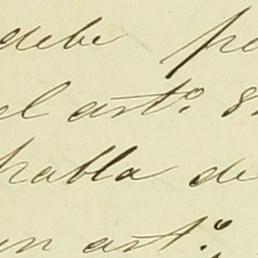 debe
el art.º
habla de
un art.º,